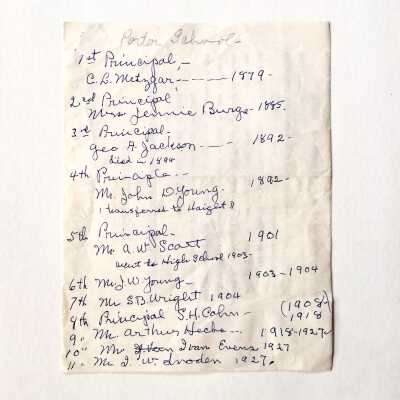 Porter School -
1st Principal, -
C. L. Metzgar - - - - 1879 -
2nd Principal
Miss Jennie Burge - 1885.
3rd Principal -
Geo A. Jackson - - - 1892 -
died in 1894
4th Principle - -
Mr. John D. Young - 1892 -
transferred to Haight
5th Principal - 1901
Mr A. W. Scott
went to High School 1903 -
6th Mr J. W Young - 1903 - 1904
7th Mr S B. Wright 1904
8th Principal S. H. Cohn - (1908
9 " Mr. Arthur Hecke - - 1918 - 1927 -
10 " Mr Ivan Evens 1927
11 " Mr I. W. 1927.